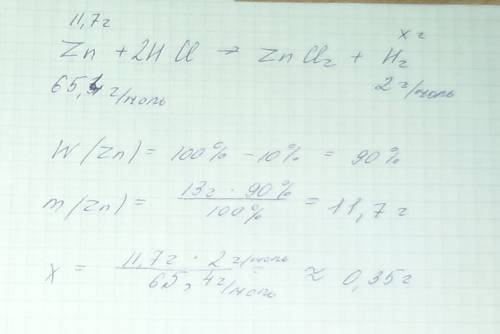 11,7г х г
Zn + 2HCl → ZnCl₂ + H₂
65,4 г/моль 2 г/моль
W(Zn) = 100% - 10% = 90%
m(Zn) = 13г · 90% / 100% = 11,7 г
X = 11,7г · 2 г/моль / 65,4 г/моль ≈ 0,35г